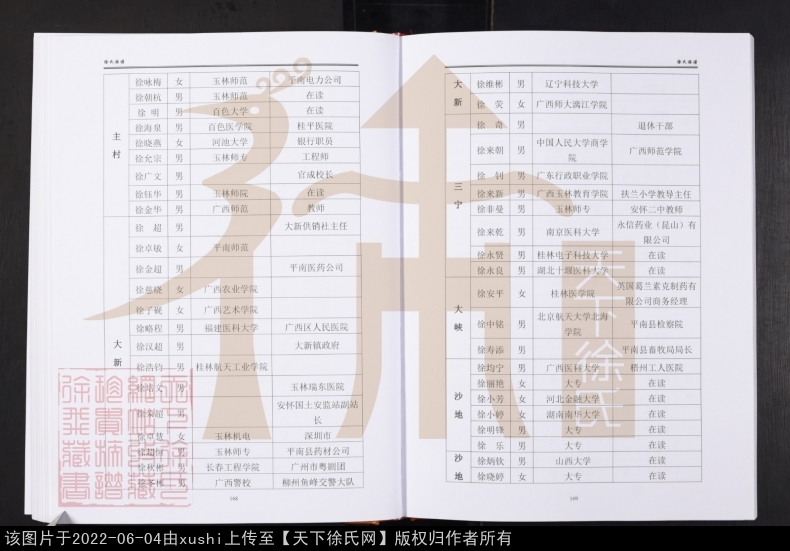 徐氏族谱
主村
徐咏梅 女 玉林师范 平南电力公司
徐朝杭 男 玉林师范 在读
徐明 男 百色大学 在读
徐海泉 男 百色医学院 桂平医院
徐晓燕 女 河池大学 银行职员
徐允宗 男 玉林师专 工程师
徐广文 男 官成校长
徐钰华 男 玉林师院 在读
徐金华 男 广西师范 教师
大新
徐超 男 大新供销社主任
徐卓敏 女 平南师范
徐金超 男 平南医药公司
徐慈晓 女 广西农业学院
徐子妮 女 广西艺术学院
徐略程 男 福建医科大学 广西区人民医院
徐汉超 男 大新镇政府
徐浩钧 男 桂林航天工业学院
徐 文 男 玉林瑞东医院
徐朱超 男 安怀国土安监站副站长
徐卓慧 女 玉林机电 深圳市
徐超恒 男 玉林师专 平南县药材公司
徐秋彬 男 长春工程学院 广州市粤剧团
徐冬林 男 广西警校 柳州鱼峰交警大队
168
徐氏族谱
大新
徐维彬 男 辽宁科技大学
徐荧 女 广西师大漓江学院
三宁
徐奇 男 退休干部
徐来朝 男 中国人民大学商学院 广西师范学院
徐钊 男 广东行政职业学院
徐来新 男 广西玉林教育学院 扶兰小学教导主任
徐非曼 男 玉林师专 安怀二中教师
徐来乾 男 南京医科大学 永信药业（昆山）有限公司
徐永贤 男 桂林电子科技大学 在读
徐永良 男 湖北十堰医科大学 在读
大峡
徐安平 女 桂林医学院 英国葛兰素克制药有限公司商务经理
徐中铭 男 北京航天大学北海学院 平南县检察院
徐寿添 男 平南县畜牧局局长
沙地
徐均宁 男 广西医科大学 梧州工人医院
徐丽艳 女 大专 在读
徐小芳 女 河北金融大学 在读
徐小婷 女 湖南南华大学 在读
徐明锋 男 大专 在读
徐乐 男 大专 在读
沙地
徐炳钦 男 山西大学 在读
徐晓婷 女 大专 在读
169
天下徐氏
该图片于2022-06-04由xushi上传至【天下徐氏网】版权归作者所有